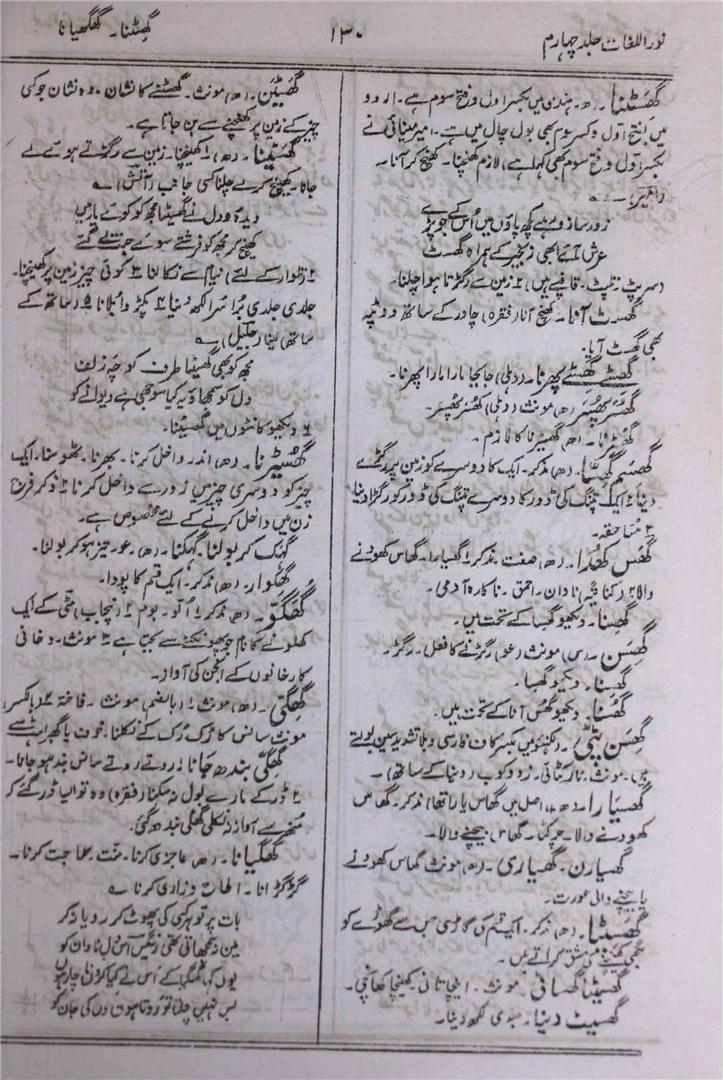 نور اللغات جلد چہارم
۱۳۰
گھِسٹنا۔ گھگھیانا
گھسٹنا۔ (ھ۔ ہندی میں بکسر اول و فتح سوم ہے۔ اردو
میں بفتح اول و کسر سوم بھی بول چال میں ہے۔ امیر مینائی نے
بکسر اول و فتح سوم بھی کہا ہے) لازم کھنچنا۔ کھنچ کر آنا۔
زور سازور ہے کچھ پاؤں میں اُس کے جو پڑے
عرش آئے ابھی زنجیر کے ہمراہ گھسٹ
(سرپٹ۔ زلپٹ۔ قافیے ہیں) ۲ زمین سے رگڑتا ہوا چلنا۔
گھسٹ آنا۔ کھنچ آنا (فقرہ) چادر کے ساتھ دوپٹہ
بھی گھسٹ آیا۔
گھسٹے گھسٹے پھرنا۔ (دہلی) جابجا مارا مارا پھرنا۔
گھُسَر پھُسَر (ھ) مونث (دہلی) کھُسَر پھُسَر۔
گھسڑنا۔ (ھ) گھسیڑنا کا لازم۔
گھِسَّم گھِسّا۔ (ھ) مذکر۔ ایک کا دوسرے کو زمین پر رگڑے
دینا ۲ ایک پتنگ کی ڈور کا دوسرے پتنگ کی ڈور کو رگڑا دینا
گھَس کھُدا۔ (ھ) صفت۔ مذکر ۱ گھسیارا۔ گھاس کھودنے
والا ۲ نادان۔ احمق۔ ناکارہ آدمی۔
گھسنا۔ دیکھو گھسا کے تحت میں۔
گھِسَن۔ مونث (عو) رگڑنے کا فعل۔ رگڑ۔
گھسنا۔ دیکھو گھسا۔
گھُسنا۔ دیکھو گھس آنا کے تحت میں۔
گھِسَن پِٹّی۔ (لکھنؤ میں بکسر کاف فارسی و بلا تشدید سین بولتے
ہیں۔ مونث۔ مار کٹائی۔ زد و کوب (دینا کے ساتھ)۔
گھسیارا۔ (ھ۔ اصل میں گھاس یارا تھا) مذکر۔ گھاس
کھودنے والا۔ چرکٹا۔ گھاس بیچنے والا۔
گھسیارن۔ گھسیاری۔ (ھ) مونث گھاس کھودنے
یا بیچنے والی عورت۔
گھسیٹا۔ (ھ) مذکر۔ ایک قسم کی گاڑی جس سے گھوڑے کو
بگھی کھینچنے کی مشق کراتے ہیں۔
گھسیٹا گھساٹی۔ مونث۔ اینچا تانی۔ کھینچا کھانچی۔
گھسیٹ دینا۔ جلدی لکھ دینا۔
گھَسیٹن۔ (ھ) مونث۔ گھسٹنے کا نشان۔ وہ نشان جو کسی
چیز کے زمین پر کھنچنے سے بن جاتا ہے۔
گھسیٹنا۔ (ھ) ۱ کھینچنا۔ زمین سے رگڑتے ہوئے لے
جانا۔ کھینچ کر لے چلنا کسی جانب (آتش) ؎
دیدہ و دل نے گھسیٹا مجھ کو کوئے یار میں
کھینچ کر مجھ کو فرشتے سوئے جنت لے گئے
۲ (تلوار کے لئے) نیام سے نکالنا ۳ کوئی چیز زمین پر کھینچنا۔
جلدی جلدی برا بھلا لکھ دینا ۴ پکڑ وا بلانا ۵ (ساتھ کے
ساتھ) لینا (جلیل) ؎
مجھ کو بھی گھسیٹا طرف کوچۂ زلف
دل کو سمجھاؤ یہ کیا سوجھی ہے دیوانے کو
۶ دیکھو کانٹوں میں گھسیٹنا۔
گھُسیڑنا۔ (ھ) اندر داخل کرنا۔ بھرنا۔ ٹھوسنا۔ ایک
چیز کو دوسری چیز میں زور سے داخل کرنا ۲ ذکر فرج
زن میں داخل کرنے کے لئے مخصوص ہے۔
گہک کر بولنا۔ گہکنا۔ (ھ) عو۔ تیز ہو کر بولنا۔
گھکوار۔ (ھ) مذکر۔ ایک قسم کا پودا۔
گھُگّو۔ (ھ) مذکر ۱ اُلّو۔ بوم ۲ (پنجاب) مٹی کے ایک
کھلونے کا نام جو پھونکنے سے بجتا ہے ۳ مونث۔ دخانی
کارخانوں کے انجن کی آواز۔
گھِگّی۔ (ھ) مونث ۱ (بالضم) مونث۔ فاختہ ۲ (بالکسر)
مونث سانس کا رُک رُک کے نکلنا۔ خوف یا گھبراہٹ سے
گھِگّی بندھ جانا ۱ روتے روتے سانس بند ہو جانا۔
۲ ڈر کے مارے بول نہ سکنا (فقرہ) وہ تو ایسا ڈر گئے کہ
منھ سے آواز نہ نکلی گھگی بندھ گئی۔
گھگیانا۔ (ھ) عاجزی کرنا۔ منت سماجت کرنا۔
گڑگڑانا۔ الحاح و زاری کرنا ؎
بات پر تو ہر کسی کی پھوٹ کر رویا نہ کر
میں نہ سمجھاتی تھی رنگیں اس دل نادان کو
بس نہیں چلتا تو روتا ہوں دل کی جان کو